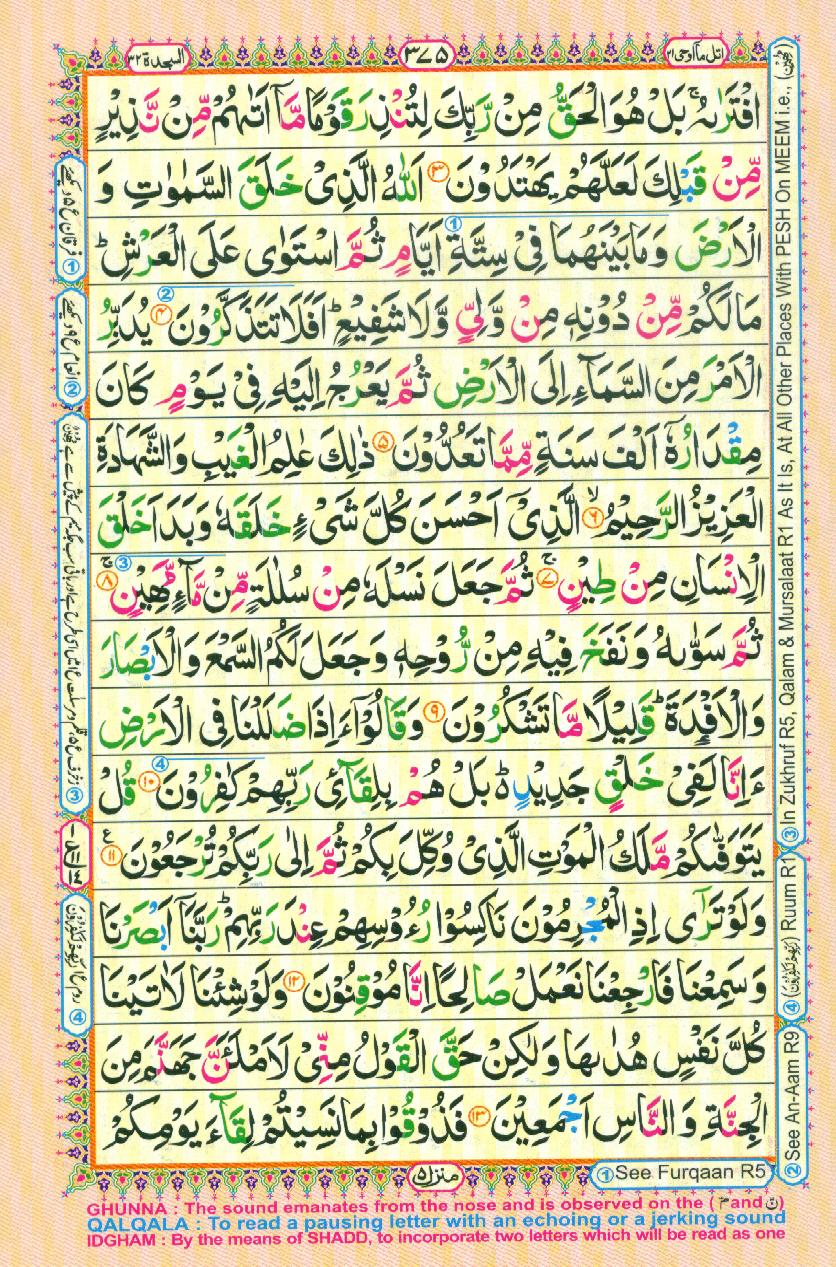 السجدة ٣٢
٣٧٥
اتل ما اوحی ٢١
افْتَرٰىهُ ۚ بَلْ هُوَ الْحَقُّ مِنْ رَّبِّكَ لِتُنْذِرَ قَوْمًا مَّاۤ اَتٰىهُمْ مِّنْ نَّذِيْرٍ
مِّنْ قَبْلِكَ لَعَلَّهُمْ يَهْتَدُوْنَ ٣ اَللّٰهُ الَّذِيْ خَلَقَ السَّمٰوٰتِ وَ
الْاَرْضَ وَمَا بَيْنَهُمَا فِيْ سِتَّةِ اَيَّامٍ ثُمَّ اسْتَوٰى عَلَى الْعَرْشِ ؕ
مَا لَكُمْ مِّنْ دُوْنِهٖ مِنْ وَّلِيٍّ وَّلَا شَفِيْعٍ ؕ اَفَلَا تَتَذَكَّرُوْنَ ٤ يُدَبِّرُ
الْاَمْرَ مِنَ السَّمَآءِ اِلَى الْاَرْضِ ثُمَّ يَعْرُجُ اِلَيْهِ فِيْ يَوْمٍ كَانَ
مِقْدَارُهٗۤ اَلْفَ سَنَةٍ مِّمَّا تَعُدُّوْنَ ٥ ذٰلِكَ عٰلِمُ الْغَيْبِ وَالشَّهَادَةِ
الْعَزِيْزُ الرَّحِيْمُ ۙ ٦ الَّذِيْۤ اَحْسَنَ كُلَّ شَيْءٍ خَلَقَهٗ وَبَدَاَ خَلْقَ
الْاِنْسَانِ مِنْ طِيْنٍ ۚ ٧ ثُمَّ جَعَلَ نَسْلَهٗ مِنْ سُلٰلَةٍ مِّنْ مَّآءٍ مَّهِيْنٍ ۚ ٨
ثُمَّ سَوّٰىهُ وَنَفَخَ فِيْهِ مِنْ رُّوْحِهٖ وَجَعَلَ لَكُمُ السَّمْعَ وَالْاَبْصَارَ
وَالْاَفْـِٕدَةَ ؕ قَلِيْلًا مَّا تَشْكُرُوْنَ ٩ وَقَالُوْۤا ءَاِذَا ضَلَلْنَا فِي الْاَرْضِ
ءَاِنَّا لَفِيْ خَلْقٍ جَدِيْدٍ ؕ۬ بَلْ هُمْ بِلِقَآئِ رَبِّهِمْ كٰفِرُوْنَ ١٠ قُلْ
يَتَوَفّٰىكُمْ مَّلَكُ الْمَوْتِ الَّذِيْ وُكِّلَ بِكُمْ ثُمَّ اِلٰى رَبِّكُمْ تُرْجَعُوْنَ ١١ ع
وَلَوْ تَرٰۤى اِذِ الْمُجْرِمُوْنَ نَاكِسُوْا رُءُوْسِهِمْ عِنْدَ رَبِّهِمْ ؕ رَبَّنَاۤ اَبْصَرْنَا
وَسَمِعْنَا فَارْجِعْنَا نَعْمَلْ صَالِحًا اِنَّا مُوْقِنُوْنَ ١٢ وَلَوْ شِئْنَا لَاٰتَيْنَا
كُلَّ نَفْسٍ هُدٰىهَا وَلٰكِنْ حَقَّ الْقَوْلُ مِنِّيْ لَاَمْلَـَٔنَّ جَهَنَّمَ مِنَ
الْجِنَّةِ وَالنَّاسِ اَجْمَعِيْنَ ١٣ فَذُوْقُوْا بِمَا نَسِيْتُمْ لِقَآءَ يَوْمِكُمْ
منزل ٥
① See Furqaan R5
② See An-Aam R9
③ In Zukhruf R5, Qalam & Mursalaat R1 As It Is, At All Other Places With PESH On MEEM i.e.,
④ Ruum R1
GHUNNA : The sound emanates from the nose and is observed on the ( مّ and نّ )
QALQALA : To read a pausing letter with an echoing or a jerking sound
IDGHAM : By the means of SHADD, to incorporate two letters which will be read as one